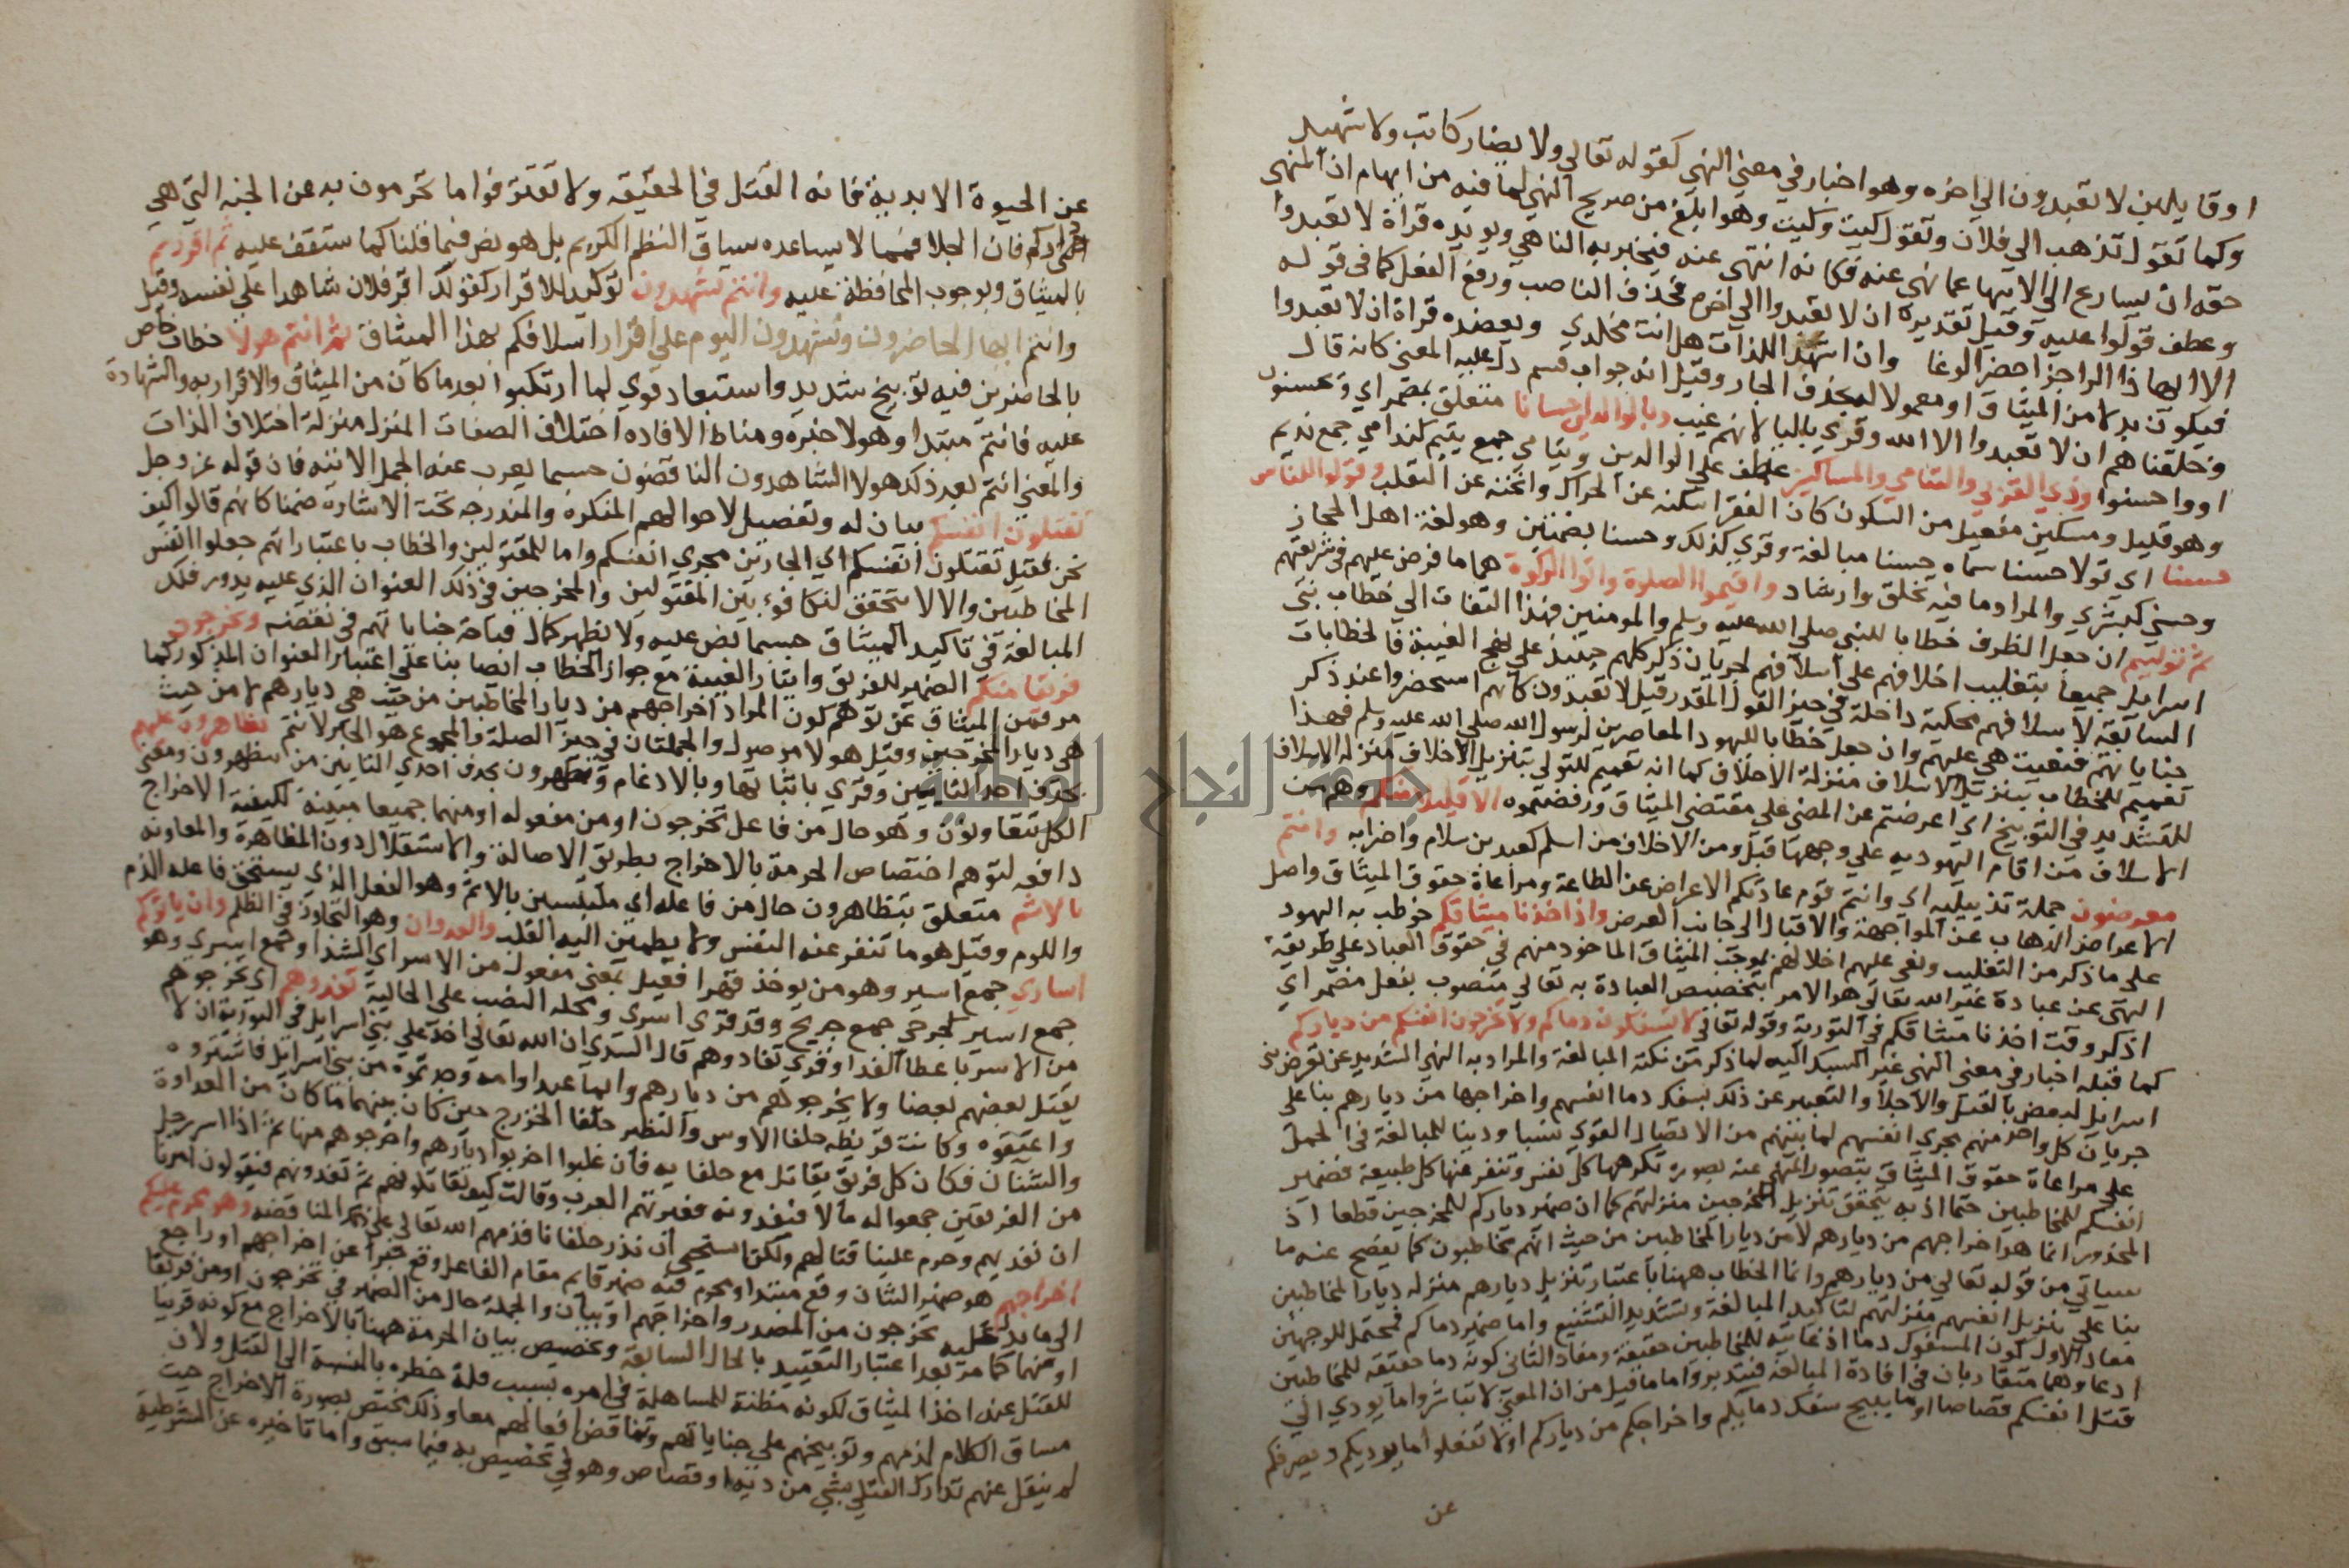 او قايلين لا تعبدون الى اخره وهو اخبار في معنى النهي كقوله تعالى ولا يضار كاتب ولا شهيد
وكما تقول تذهب الى فلان وتقول كيت وكيت وهو ابلغ من صريح النهي لما فيه من ايهام ان المنهي
حقه ان يسارع الى الانتها عما نهي عنه فكانه انتهى عنه فيخبر به الناهي ويويده قراة لا تعبدوا
وعطف قولوا عليه وقيل تقديره ان لا تعبدوا الى اخره فحذف الناصب ورفع الفعل كما في قوله
الا ايهاذا الزاجزا احضر الوغا وان اشهد اللذات هل انت مخلدي ويعضده قراة ان لا تعبدوا
فيكون بدلا من الميثاق او معمولا له بحذف الجار وقيل انه جواب قسم دل عليه المعنى كانه قال
وحلفناهم ان لا تعبدوا الا الله وقري باليا لانهم غيب وبالوالدين احسانا متعلق بمضمر اي وتحسنون
او واحسنوا وذي القربى واليتامي والمساكين عطف على الوالدين ويتامي جمع يتيم كندامي جمع نديم
وهو قليل ومسكين مفعيل من السكون كان الفقر اسكنه عن الحراك واثخنه عن التقلب وقولوا للناس
حسنا اي قولا حسنا سماه حسنا مبالغة وقري كذلك وحسنا بضمتين وهو لغة اهل الحجاز
وحسنى كبشرى والمراد ما فيه تخلق وارشاد واقيموا الصلوة واتوا الزكوة هما ما فرض عليهم في شريعتهم
ثم توليتم ان جعل الظرف خطابا للنبي صلى الله عليه وسلم والمومنين فهذا التفات الى خطاب بني
اسرايل جميعا بتغليب اخلافهم على اسلافهم لجريان ذكر كلهم حينئذ على نهج الغيبة فالخطابات
السابقة لاسلافهم محكية داخلة في حيز القول المقدر قبل لا تعبدون كانهم استحضروا عند ذكر
جناياتهم فنعيت هي عليهم وان جعل خطابا لليهود المعاصرين لرسول الله صلى الله عليه وسلم فهذا
تعميم للخطاب بتنزيل الاسلاف منزلة الاخلاف كما انه تعميم للتولي بتنزيل الاخلاف منزلة الاسلاف
للتشديد في التوبيخ اي اعرضتم عن المضي على مقتضى الميثاق ورفضتموه الا قليلا منكم وهم من
الاسلاف من اقام اليهوديه على وجهها قبل ومن الاخلاف من اسلم كعبد بن سلام واضرابه وانتم
معرضون جملة تذييليه اي وانتم قوم عادتكم الاعراض عن الطاعة ومراعاة حقوق الميثاق واصل
الاعراض الذهاب عن المواجهة والاقبال الى جانب العرض واذ اخذنا ميثاقكم خوطب به اليهود
على ما ذكر من التغليب ونعى عليهم اخلالهم بموجب الميثاق الماخوذ منهم في حقوق العباد على طريقة
النهي عن عبادة غير الله تعالى هو الامر بتخصيص العبادة به تعالى منصوب بفعل مضمر اي
اذكر وقت اخذنا ميثاقكم في التورية وقوله تعالى لا تسفكون دماكم ولا تخرجون انفسكم من دياركم
كما قبله اخبار في معنى النهي غير السبك اليه لما ذكر من نكتة المبالغة والمراد به النهي الشديد عن تعرض بني
اسرايل لبعض بالقتل والاجلا والتعبير عن ذلك بسفك دما انفسهم واخراجها من ديارهم بنا على
جريان كل واحد منهم مجرى انفسهم لما بينهم من الاتصال القوي نسبا ودينا للمبالغة في الحمل
على مراعاة حقوق الميثاق بتصوير المنهي عنه بصورة تكرهها كل نفس وتنفر عنها كل طبيعة فضمير
انفسكم للمخاطبين حتما اذ به يتحقق تنزيل المخرجين منزلتهم كما ان ضمير دياركم للمخرجين قطعا اذ
المحذور انما هو اخراجهم من ديارهم لا من ديار المخاطبين من حيث انهم مخاطبون كما يفصح عنه ما
سياتي من قوله تعالى من ديارهم وانما الخطاب ههنا باعتبار تنزيل ديارهم منزلة ديار المخاطبين
بنا على تنزيل انفسهم منزلتهم لتاكيد المبالغة وتشديد التشنيع واما ضمير دماكم فمحتمل للوجهين
مفاد الاول كون المسفوك دما ادعائيه للمخاطبين حقيقة ومفاد الثاني كونه دما حقيقة للمخاطبين
ادعا وهما متقاربان في افادة المبالغة فتدبر واما ما قيل من ان المعنى لا تباشروا ما يودي الى
قتل انفسكم قصاصا او ما يبيح سفك دمايكم واخراجكم من دياركم او لا تفعلوا ما يوديكم ويصرفكم
عن
عن الحيوة الابدية فانه القتل في الحقيقه ولا تقترفوا ما تحرمون به عن الجنه التي هي
داركم فان الجلا فيهما لا يساعده سياق النظم الكريم بل هو نص فيما قلنا كما ستقف عليه ثم اقررتم
بالميثاق وبوجوب المحافظة عليه وانتم تشهدون توكيد للاقرار كقولك اقر فلان شاهدا على نفسه وقيل
وانتم ايها الحاضرون وتشهدون اليوم على اقرار اسلافكم بهذا الميثاق ثم انتم هولا خطاب خاص
بالحاضرين فيه توبيخ شديد واستبعاد قوي لما ارتكبوا بعد ما كان من الميثاق والاقرار به والشهادة
عليه فانتم مبتدا وهولا خبره ومناط الافاده اختلاف الصفات المنزل منزلة اختلاف الذات
والمعنى انتم بعد ذلك هولا الشاهدون الناقضون حسبما يعرب عنه الجمل الاتيه فان قوله عز وجل
تقتلون انفسكم بيان له وتفصيل لاحوالهم المنكرة والمندرجه تحت الاشارة ضمنا كانهم قالوا كيف
نحن فقيل تقتلون انفسكم اي الجارين مجرى انفسكم واما للمقتولين والخطاب باعتبار انهم جعلوا انفس
المخاطبين والا لا يتحقق التكافوء بين المقتولين والمخرجين في ذلك العنوان الذي عليه يدور فلك
المبالغة في تاكيد الميثاق حسبما نص عليه ولا يظهر كمال قباحة جناياتهم في نقضه وتخرجون
فريقا منكم الضمير للفريق وايثار الغيبة مع جواز الخطاب ايضا بنا على اعتبار العنوان المذكور كما
مر في الميثاق عن توهم كون المراد اخراجهم من ديار المخاطبين من حيث هي ديارهم لا من حيث
هي ديار المخرجين وقيل هولا موصول والجملتان في حيز الصلة والمجموع هو الخبر لانتم تظاهرون عليهم
بحذف احد التائين وقري باثباتها وبالادغام وتظهرون بحذف احدى التايين من تتظهرون ومعنى
الكل تتعاونون وهو حال من فاعل تخرجون او من مفعوله او منهما جميعا مبينة لكيفية الاخراج
دافعه لتوهم اختصاص الحرمة بالاخراج بطريق الاصالة والاستقلال دون المظاهرة والمعاونه
بالاثم متعلق بتظاهرون حال من فاعله اي ملتبسين بالاثم وهو الفعل الذي يستحق فاعله الذم
واللوم وقيل هو ما تنفر عنه النفس ولا يطمين اليه القلب والعدوان وهو التجاوز في الظلم وان ياتوكم
اسارى جمع اسير وهو من يوخذ قهرا فعيل بمعنى مفعول من الاسر اي الشد او جمع اسرى وهو
جمع اسير كجرحى جمع جريح وقد قرى اسرى ومحله النصب على الحالية تفدوهم اي تخرجوهم
من الاسر باعطا الفدا وقري تفادوهم قال السدي ان الله تعالى اخذ على بني اسرايل في التورية ان لا
يقتل بعضهم بعضا ولا يخرجوهم من ديارهم وايما عبد او امة وجدتموه من بني اسرايل فاشتروه
واعتقوه وكانت قريظه حلفا الاوس والنظير حلفا الخزرج حين كان بينهما ما كان من العداوة
والشنان فكان كل فريق يقاتل مع حلفايه فان غلبوا اخربوا ديارهم واخرجوهم منها ثم اذا اسر رجل
من الفريقين جمعوا له مالا فيفدونه فعيرتهم العرب وقالت كيف تقاتلونهم ثم تفدونهم فيقولون امرنا
ان نفديهم وحرم علينا قتالهم ولكنا نستحي ان نذر حلفانا فذمهم الله تعالى على المناقضه وهو محرم عليكم
اخراجهم هو ضمير الشان وقع مبتدا ومحرم فيه ضمير قايم مقام الفاعل وقع خبرا عن اخراجهم او راجع
الى ما يدل عليه تخرجون من المصدر واخراجهم او بيان والجملة حال من الضمير في تخرجون او من فريقا
او منهما كما مر بعد اعتبار التقييد بالحال السابقة وتخصيص بيان الحرمة ههنا بالاخراج مع كونه قرينا
للقتل عند اخذ الميثاق لكونه مظنة للمساهلة في امره بسبب قلة خطره بالنسبة الى القتل ولان
مساق الكلام لذمهم وتوبيخهم على جناياتهم وتناقض افعالهم معا وذلك مختص بصورة الاخراج حيث
لم ينقل عنهم تدارك القتلى بشي من دية او قصاص وهو في تخصيص به فيما سبق واما تاخيره عن الشرطية
جامعة النجاح الوطنية